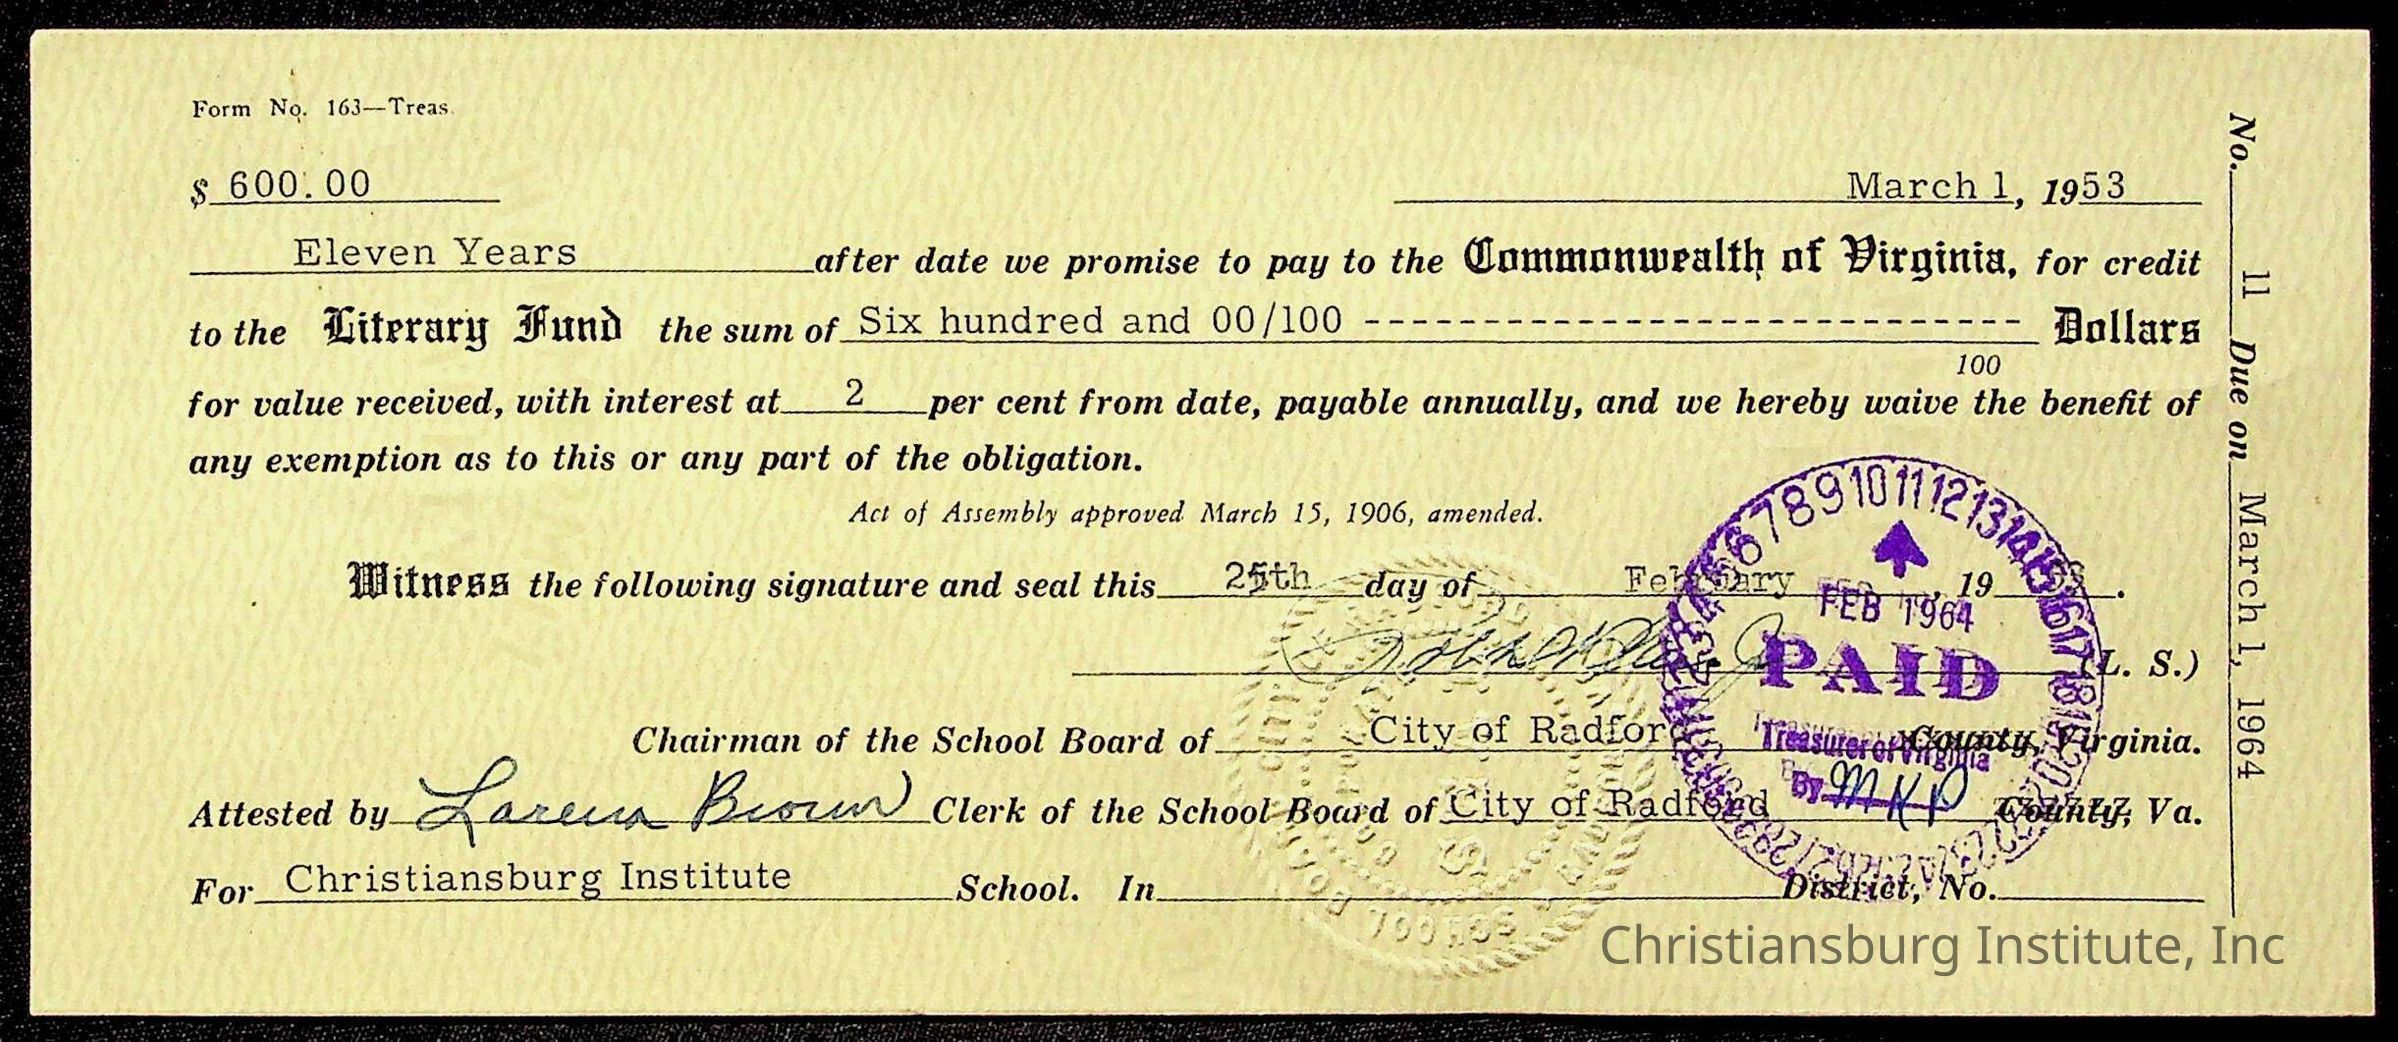 Form No. 163—Treas.
$ 600.00
March 1, 1953
Eleven Years after date we promise to pay to the Commonwealth of Virginia, for credit
to the Literary Fund the sum of Six hundred and 00/100 ---------------------------- Dollars
100
for value received, with interest at 2 per cent from date, payable annually, and we hereby waive the benefit of
any exemption as to this or any part of the obligation.
Act of Assembly approved March 15, 1906, amended.
Witness the following signature and seal this 25th day of February, 19 53.
(L. S.)
Chairman of the School Board of City of Radford County, Virginia.
Attested by Brown Clerk of the School Board of City of Radford County, Va.
For Christiansburg Institute School. In District, No.
No. 11 Due on March 1, 1964
6 7 8 9 10 11 12 13 14 15 16 17 18
FEB 1964
PAID
Treasurer of Virginia
By MKP
Christiansburg Institute, Inc